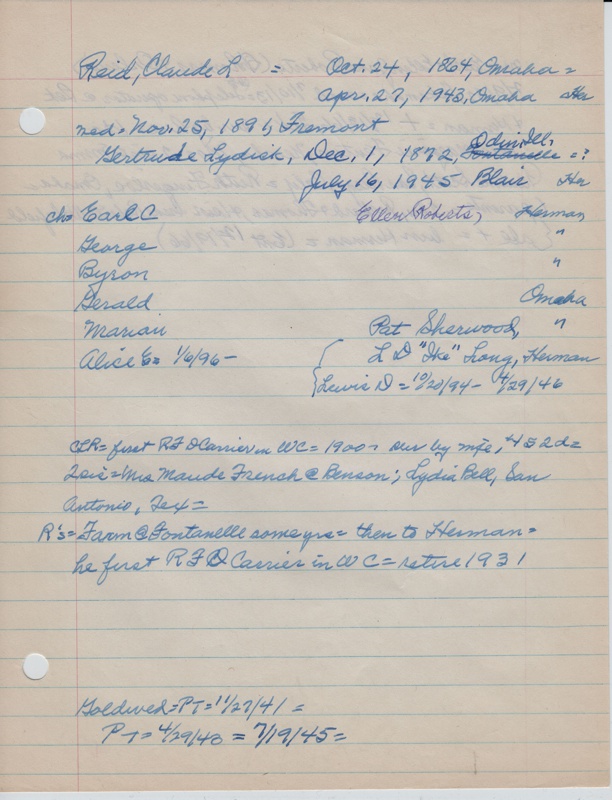 Reid, Claude L = Oct. 24, 1864, Omaha =
Apr. 27, 1943, Omaha Her
med = Nov. 25, 1891, Fremont
Odin, Ill.
Gertrude Lydick, Dec. 1, 1872, Fontanelle = ?
July 16, 1945 Blair Her
ch = Earl C Ellen Roberts, Herman
George "
Byron "
Gerald Omaha
Marian Pat Sherwood, "
Alice E = 1/6/96 - L D "Ike" Long, Herman
Lewis D = 10/20/94 - 4/29/46
CLR = first RFD Carrier in WC = 1900 = Sur by wife, 4 S 2 d =
2 sis = Mrs Maude French @ Benson; Lydia Bell, San
Antonio, Tex =
R's = Farm @ Fontanelle some yrs = then to Herman =
he first RFD Carrier in WC = retire 1931
Goldwed = PT = 11/27/41 =
PT = 4/29/43 = 7/19/45 =